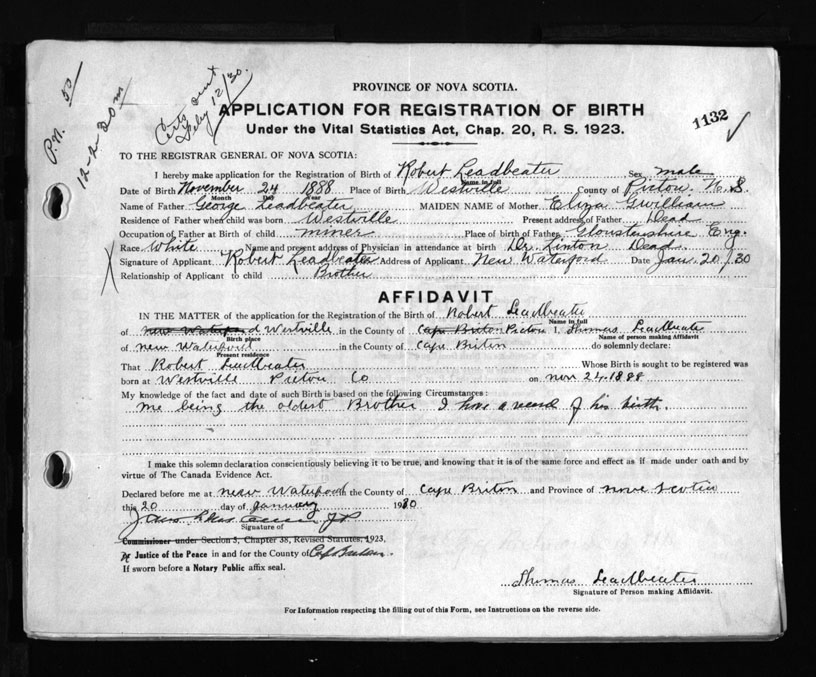 P.N. 50
12-2-30 m
Certf sent
Feby 12/30.
PROVINCE OF NOVA SCOTIA.
APPLICATION FOR REGISTRATION OF BIRTH
1132
Under the Vital Statistics Act, Chap. 20, R. S. 1923.
TO THE REGISTRAR GENERAL OF NOVA SCOTIA:
I hereby make application for the Registration of Birth of Robert Leadbeater Sex male
Name in full
Date of Birth November 24 1888 Place of Birth Westville County of Pictou N.S.
Month Day Year
Name of Father George Leadbeater MAIDEN NAME of Mother Eliza Gwilliam
Residence of Father when child was born Westville Present address of Father Dead
Occupation of Father at Birth of child miner Place of birth of Father Gloustershire Eng.
Race White Name and present address of Physician in attendance at birth Dr. Linton Dead.
Signature of Applicant Robert Leadbeater Address of Applicant New Waterford Date Jan. 20/30
Relationship of Applicant to child Brother
AFFIDAVIT
IN THE MATTER of the application for the Registration of the Birth of Robert Leadbeater
Name in full
of new Waterford Westville in the County of Cape Briton Pictou I, Thomas Leadbeater
Birth place Name of person making Affidavit
of new Waterford in the County of Cape Briton do solemnly declare:
Present residence
That Robert Leadbeater Whose Birth is sought to be registered was
born at Westville Pictou Co on nov 24-1888
My knowledge of the fact and date of such Birth is based on the following Circumstances:
me being the oldest Brother I have a record of his birth.
I make this solemn declaration conscientiously believing it to be true, and knowing that it is of the same force and effect as if made under oath and by
virtue of The Canada Evidence Act.
Declared before me at new Waterford in the County of Cape Briton and Province of nova scotia
this 20 day of january 1930
J.P.
Signature of
Commissioner under Section 3, Chapter 38, Revised Statutes, 1923,
Justice of the Peace in and for the County of Cape Breton.
If sworn before a Notary Public affix seal.
Thomas Leadbeater
Signature of Person making Affidavit.
For Information respecting the filling out of this Form, see Instructions on the reverse side.